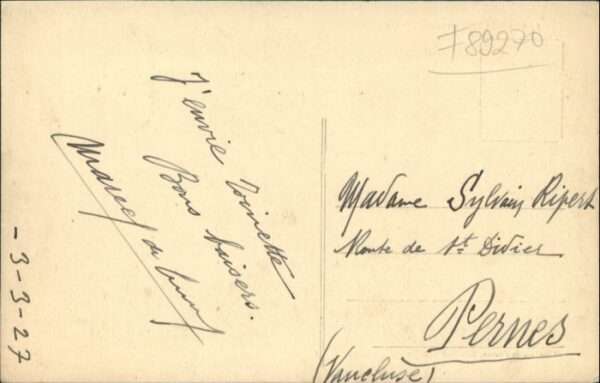 J'envie Toinette
Bons baisers.
Marcel de
- 3 - 3 - 27
F89270
Madame Sylvain Ripert
Route de St Didier
Pernes
(Vaucluse)